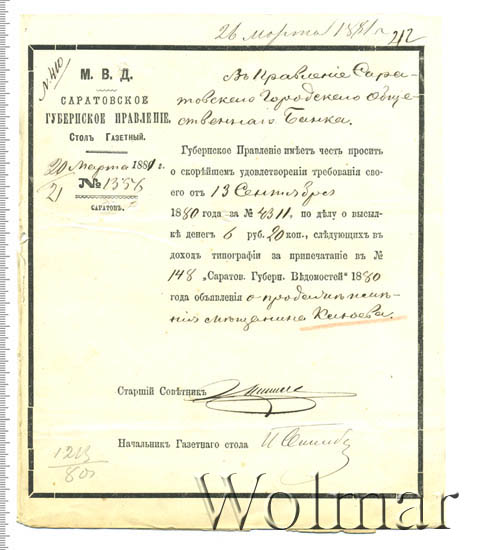 26 Марта 1881 г.
212
№ 410
М. В. Д.
САРАТОВСКОЕ
ГУБЕРНСКОЕ ПРАВЛЕНІЕ.
Столъ Газетный.
20/21 Марта 1881 г.
№ 1356
САРАТОВЪ.
Въ Правленіе Сара-
товскаго Городскаго Обще-
ственнаго Банка.
Губернское Правленіе имѣетъ честь просить
о скорѣйшемъ удовлетвореніи требованія сво-
его отъ 13 Сентября
1880 года за № 4311, по дѣлу о высыл-
кѣ денегъ 6 руб. 20 коп., слѣдующихъ въ
доходъ типографіи за припечатаніе въ №
148 „Саратов. Губерн. Вѣдомостей" 1880
года объявленія о продажѣ имѣ-
нія мѣщанина Клюева.
Старшій Совѣтникъ
Начальник Газетнаго стола
1213
80
Wolmar